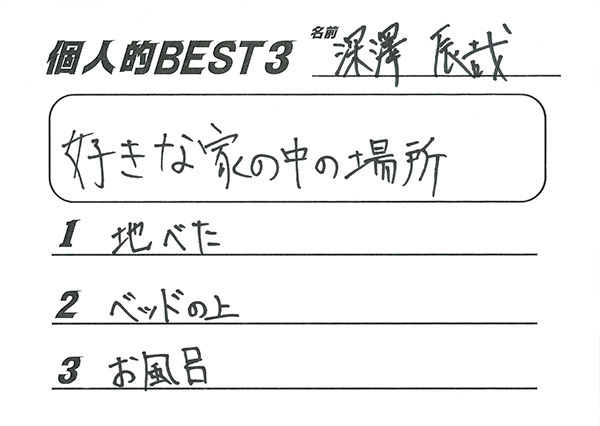 個人的BEST3
名前 深澤 辰哉
好きな家の中の場所
1 地べた
2 ベッドの上
3 お風呂